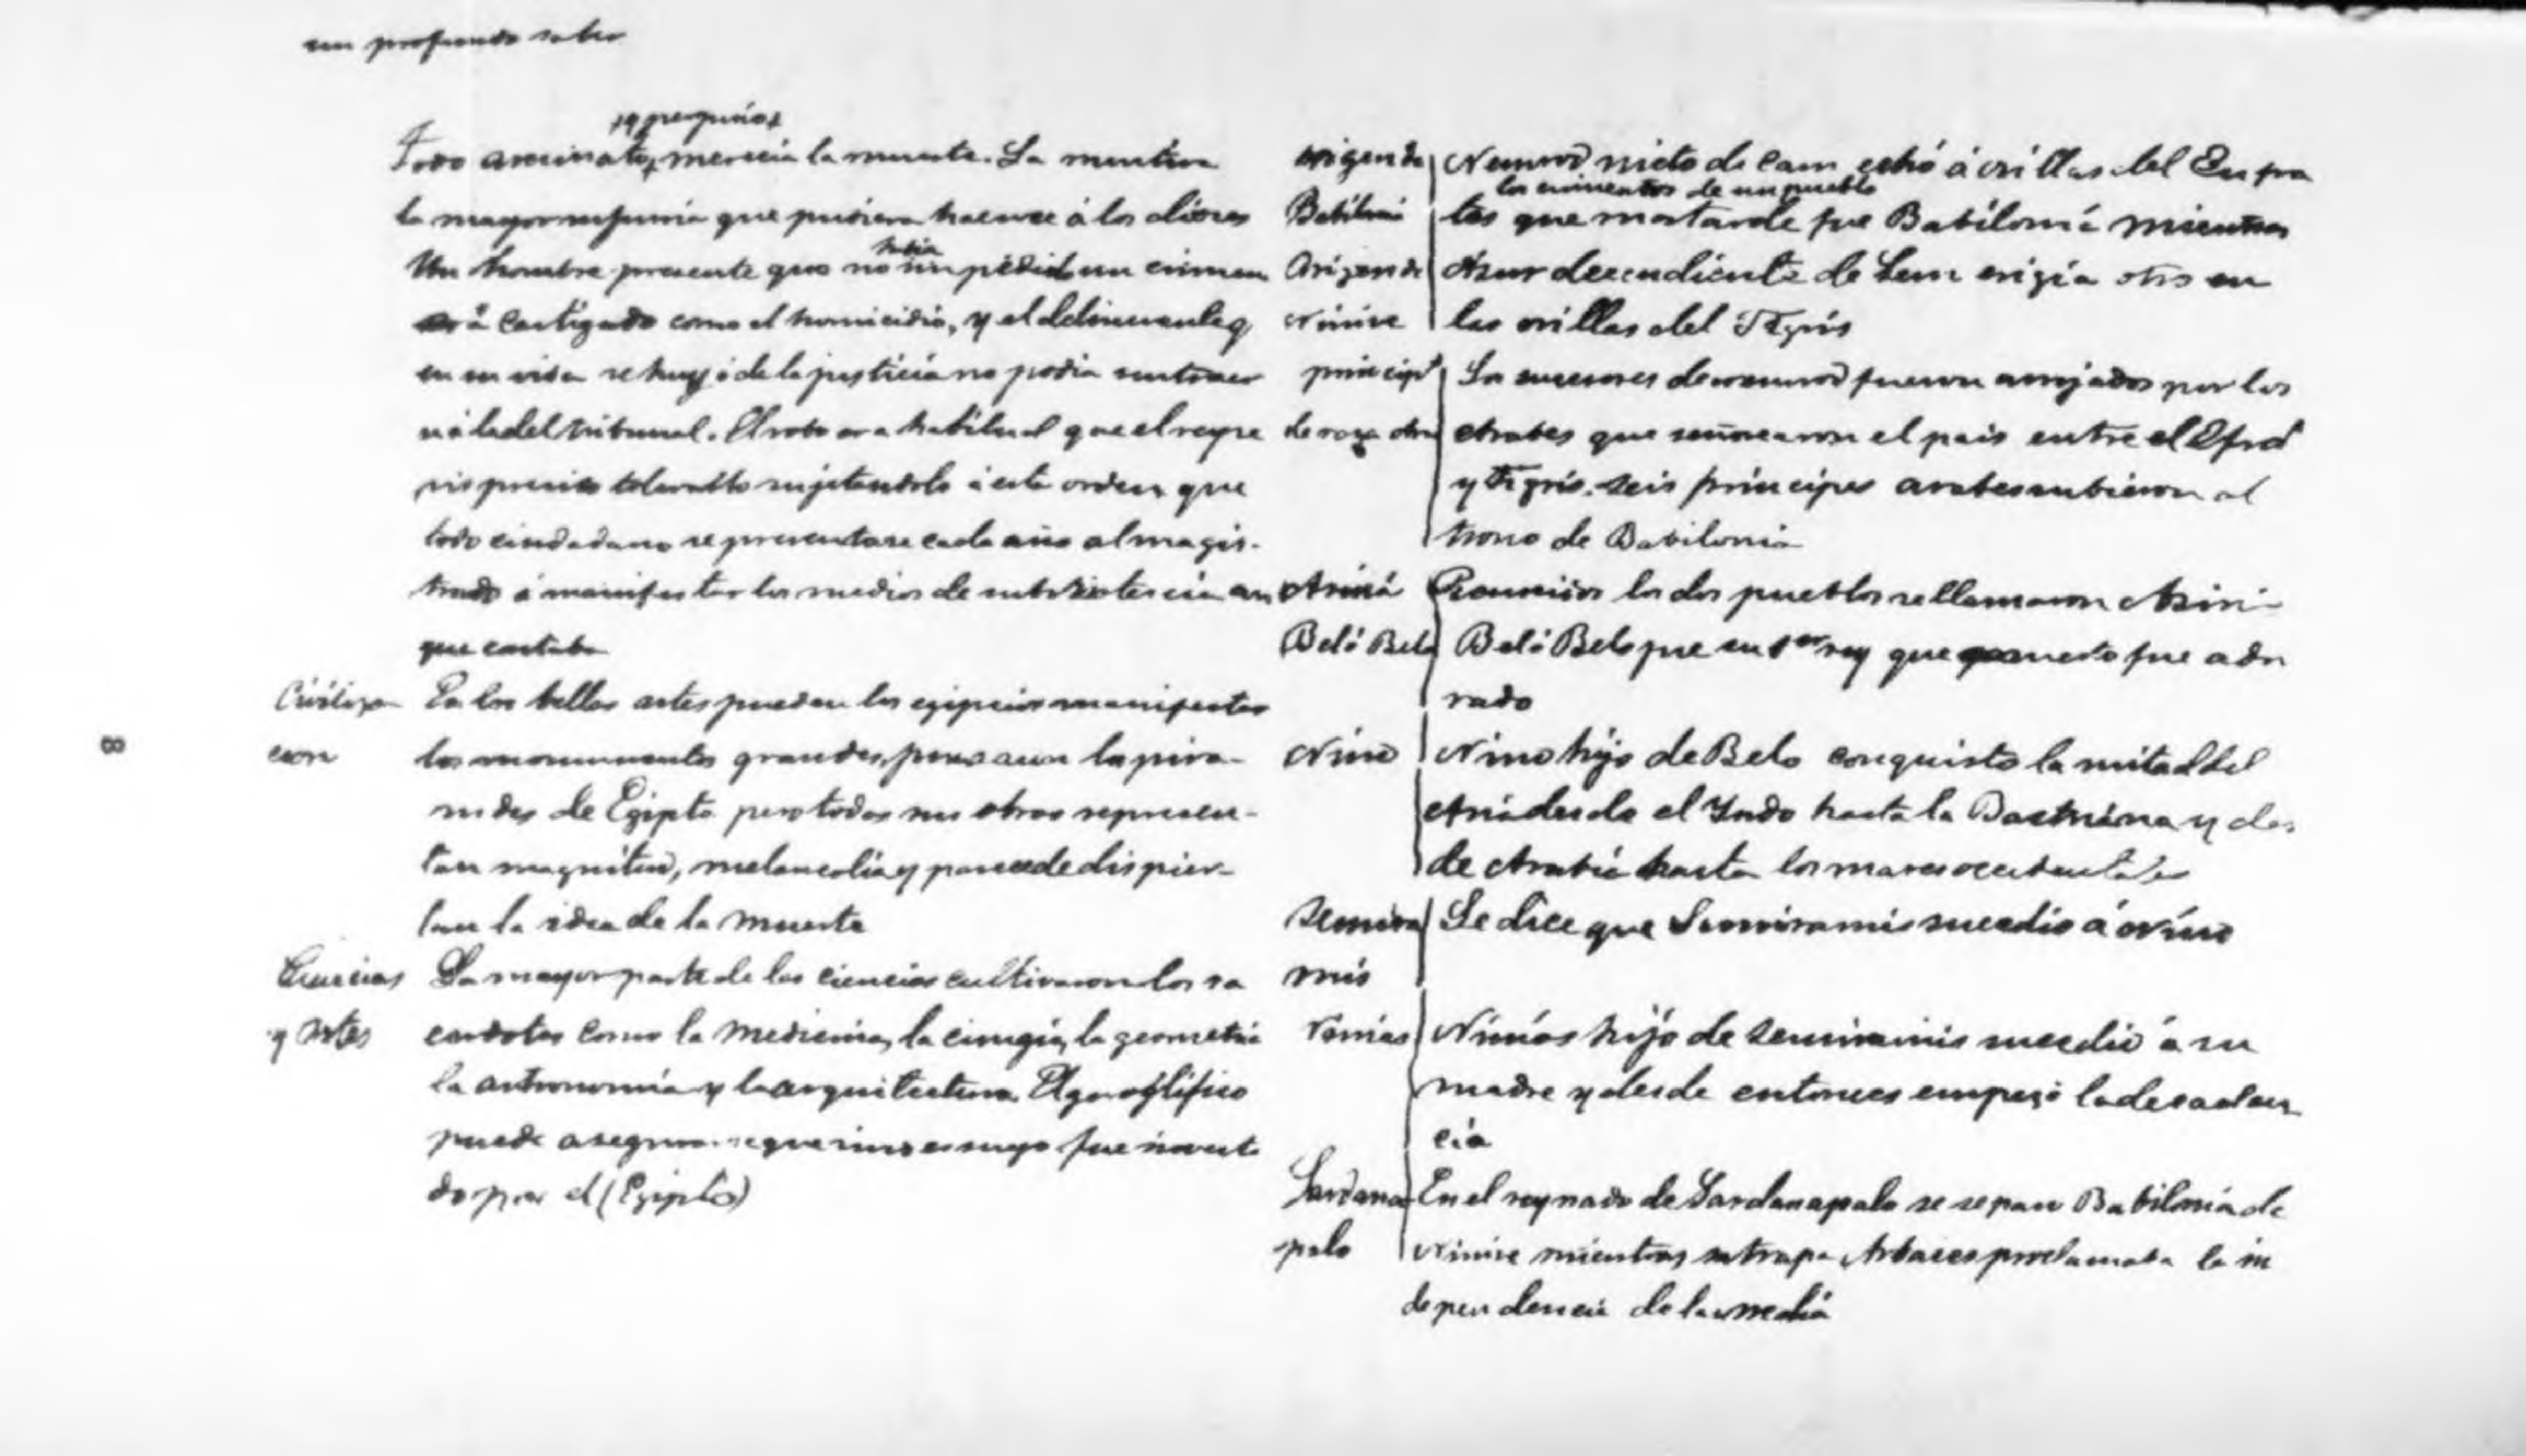 un profundo saber
Todo asesinato, merecia la muerte. La mentira
la mayor injuria que pudiera hacerse á los dioses
habia
Un hombre presente que no impedido un crimen
era castigado como el homicidio, y el delincuente q
en su vida se huyó de la justicia no podia sustraer
se á la del tribunal. El robo era habitual que el rey
preciso tolerarlo sujetandolo á esta orden que
todo ciudadano se presentase cada año al magis-
trado á manifestar los medios de subsistencia
que contaba
Civiliza En las bellas artes pueden los egipcios manifestar
cion los monumentos grandes, pues aun la pira-
mides de Egipto pero todas sus obras represen-
tan magnitud, melancolia y parece de dispier-
tan la idea de la muerte
Ciencias La mayor parte de las ciencias cultivaron los sa
y Artes cerdotes como la medicina, la cirugia, la geometria
la astronomia y la arquitectura. El geroglifico
puede asegurarse que sino es suyo fue inventa
do por el (Egipto)
origen de Nemrod nieto de Cam echó á orillas del Eufra
los cimientos de un pueblo
Babilonia tes que mas tarde fue Babilonia mientras
Origen de Asur decendiente de Sem erigia otro en
Ninive las orillas del Tigris
princip Los sucesores de Nemrod fueron arrojados por los
de raza Arabes que señorearon el pais entre el Efrat
y Tigris. Seis principes arabes subieron al
trono de Babilonia
Asiriá Reunidos los dos pueblos se llamaron Asiri-
Beló Belo Beló Belo fue su 1er rey que muerto fue ado
rado
Nino Nino hijo de Belo conquisto la mitad del
Asia desde el Indo hasta la Bactriana y des
de Arabia hasta los mares occidentales
Semira Se dice que Semiramis sucedio á Nino
mis
Ninias Ninias hijo de Semiramis sucedió á su
madre y desde entonces empezó la decaden
cia
Sardana En el reynado de Sardanapalo se separo Babilonia de
palo Ninive mientras satrapa Arbaces proclamaba la in
dependencia de la media
8